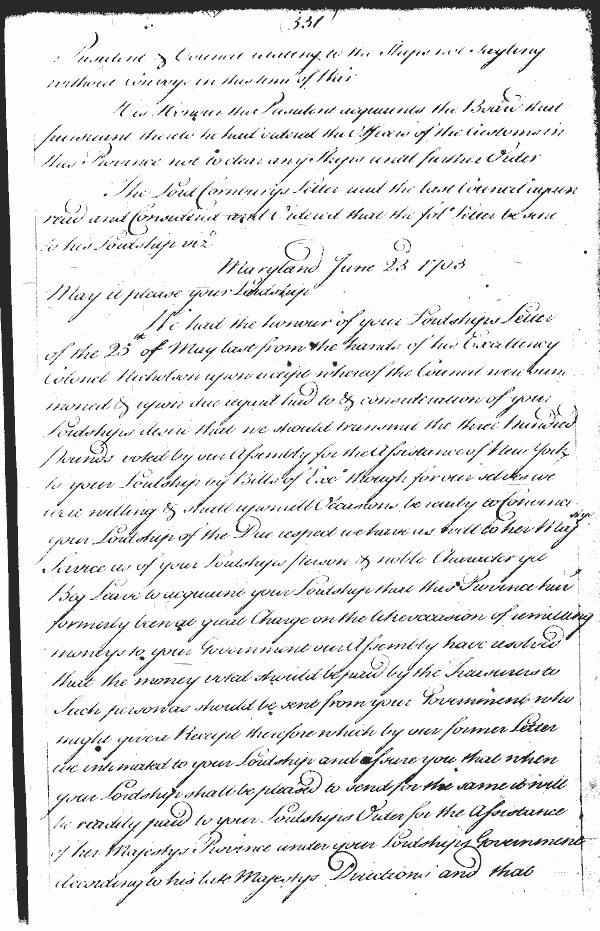 331
President & Council relating to the Ships not Sayling
without Convoys in this time of War
His Honour the President acquaints the Board that
pursuant thereto he had ordered the Officers of the Customs in
this Province not to clear any Ships until further Order
The Lord Cornburys Letter and the last Council
read and Considered and Ordered that the fol.o Letter be sent
to his Lordship viz.t
Maryland June 23 1703
May it please your Lordship
We had the honour of your Lordships Letter
of the 25th of May last from the hands of his Excellency
Colonel Nicholson upon receipt whereof the Council were sum
moned & upon due regard had to & consideration of your
Lordships desire that we should transmit the three hundred
Pounds voted by our Assembly for the Assistance of New York
to your Lordship by Bills of Exc.a though for our selves we
are willing & shall upon all Occasions be ready to Convince
your Lordship of the Due respect we have as well to her Majtys
Service as of your Lordships person & noble Character yet
Beg Leave to acquaint your Lordship that this Province hav.g
formerly been at great Charge on the like occasion of remitting
moneys to your Government our Assembly have resolved
that the money voted should be paid by the Treasurers to
Such person as should be sent from your Government who
might give a Receipt therefore which by our former Letter
we intimated to your Lordship and assure you that when
your Lordship shall be pleased to send for the same it will
be readily paid to your Lordships Order for the Assistance
of her Majestys Province under your Lordships Government
According to his late Majestys Directions and that